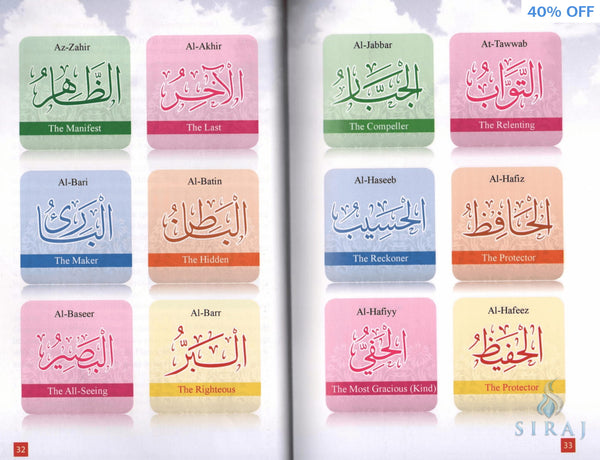 40% OFF
Az-Zahir
الظَّاهِرُ
The Manifest
Al-Akhir
الْآخِرُ
The Last
Al-Bari
الْبَارِئُ
The Maker
Al-Batin
الْبَاطِنُ
The Hidden
Al-Baseer
الْبَصِيرُ
The All-Seeing
Al-Barr
الْبَرُّ
The Righteous
32
Al-Jabbar
الْجَبَّارُ
The Compeller
At-Tawwab
التَّوَّابُ
The Relenting
Al-Haseeb
الْحَسِيبُ
The Reckoner
Al-Hafiz
الْحَافِظُ
The Protector
Al-Hafiyy
الْحَفِيُّ
The Most Gracious (Kind)
Al-Hafeez
الْحَفِيظُ
The Protector
33
SIRAJ